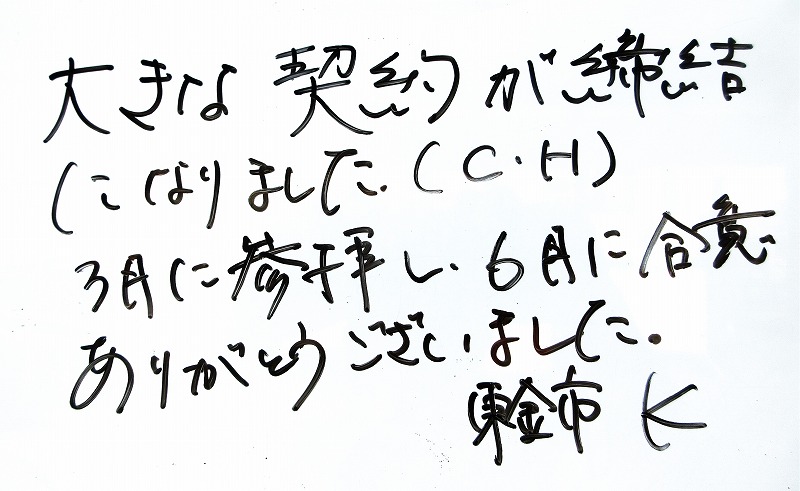 大きな契約が締結
になりました.(C.H)
3月に参拝し.6月に合意
ありがとうございました.
東金市 K